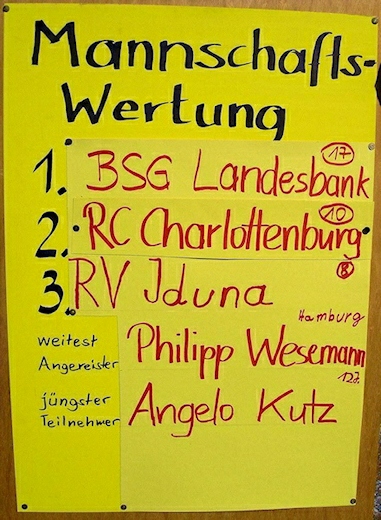 Mannschafts-
Wertung
1. BSG Landesbank 17
2. RC Charlottenburg 10
3. RV Iduna 8
weitest Angereister Philipp Wesemann Hamburg
jüngster Teilnehmer Angelo Kutz 12J.